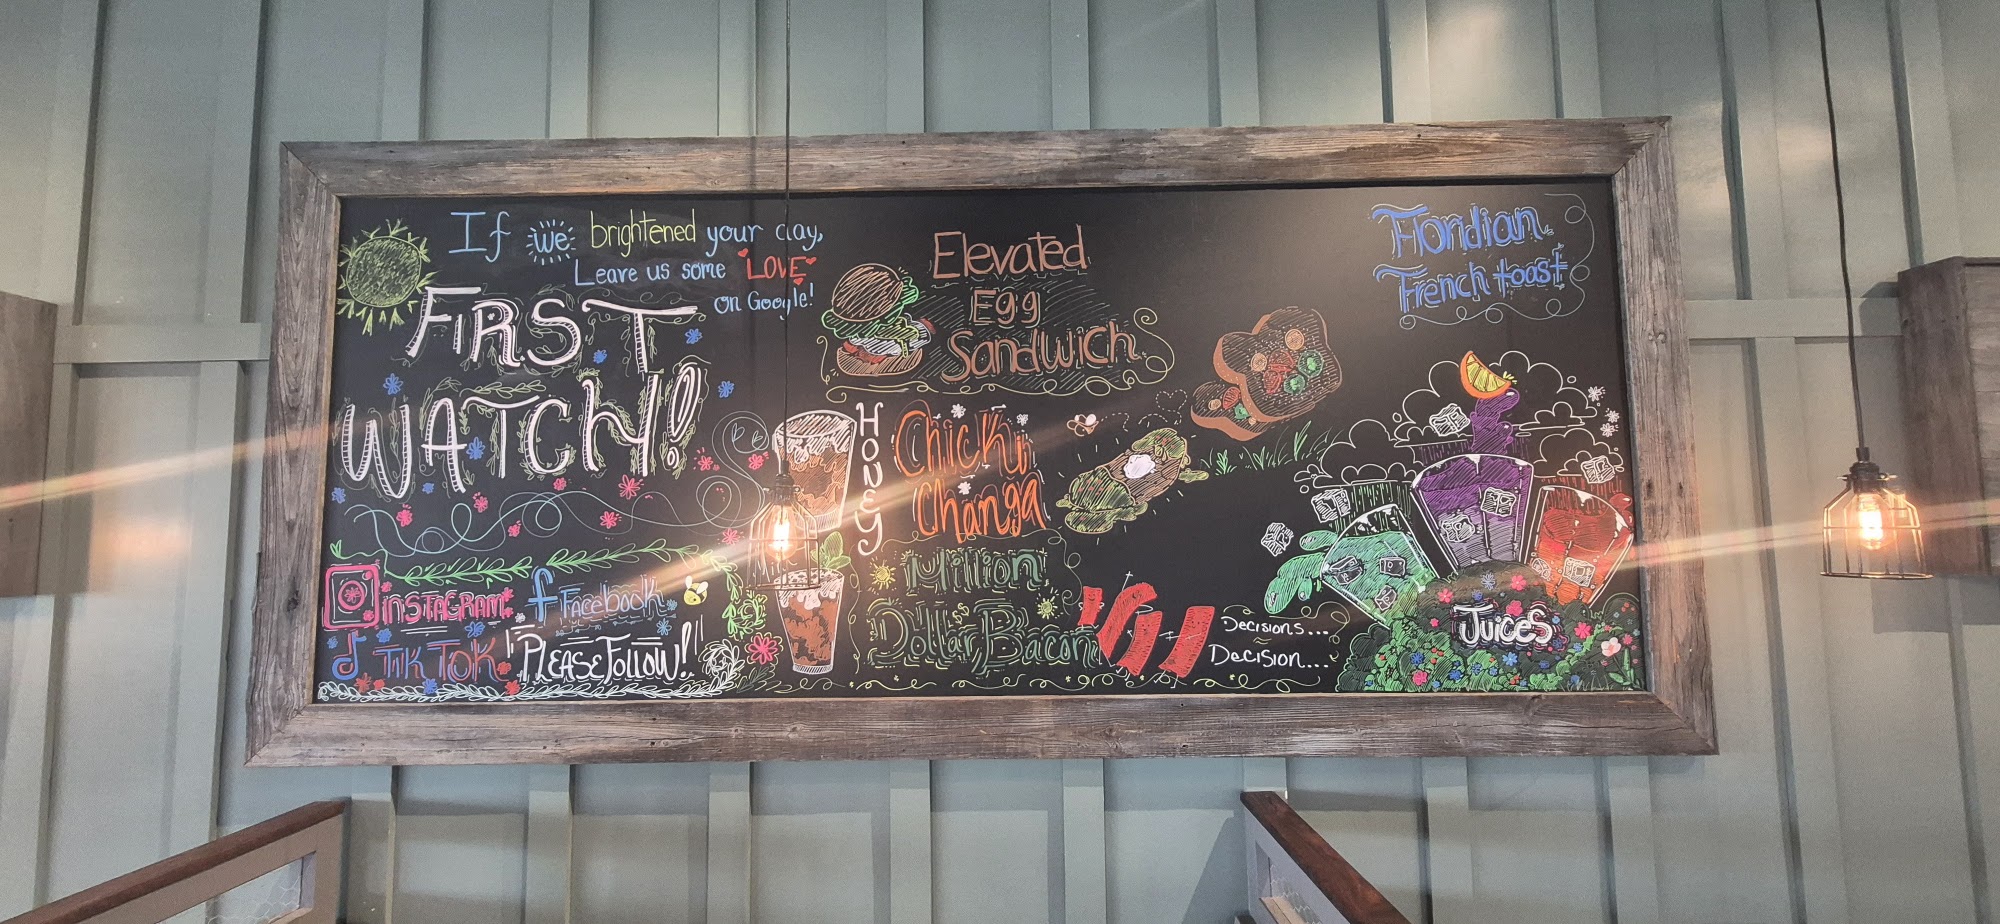 If we brightened your day,
Leave us some LOVE
on Google!
FIRST
WATCH!
INSTAGRAM
f Facebook
TIKTOK
"PLEASE FOLLOW!"
HONEY
Elevated
Egg
Sandwich
Chicki
Changa
Million
Dollar Bacon
Decisions...
Decision...
Floridian
French toast
Juices